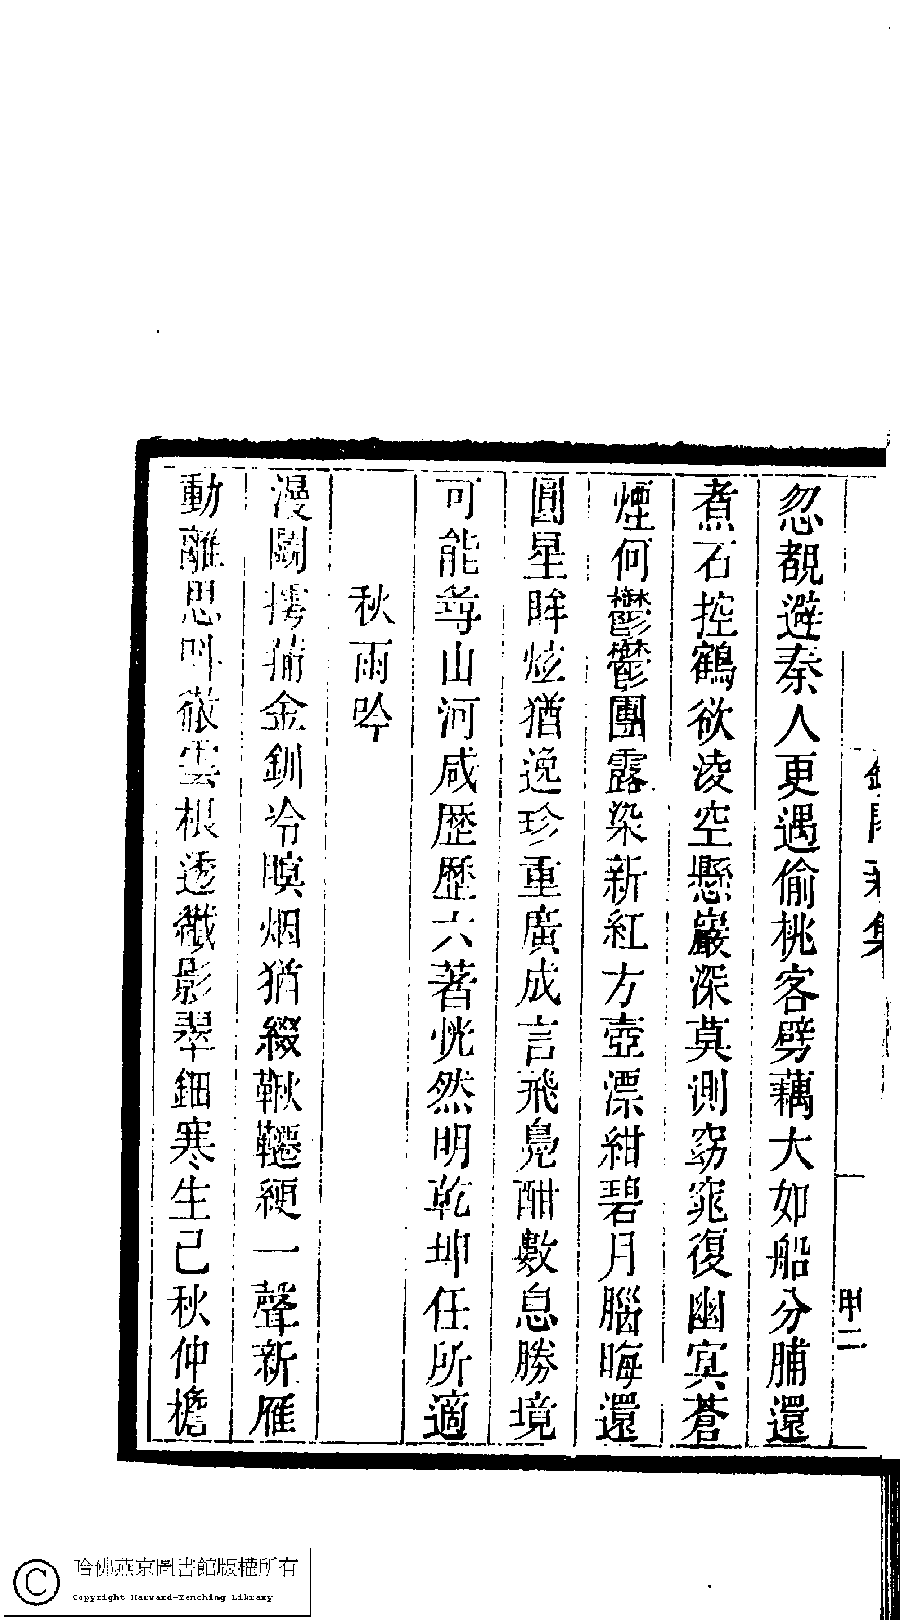 忽覩避秦人更遇偷桃客劈藕大如船分脯還
煮石控鶴欲淩空懸巖深莫測窈窕復幽寘蒼
煙何鬱鬱團露染新紅方壺漂紺碧月腦晦還
圓星眸炫猶逸珍重廣成言飛鳧酣數息勝境
可能尋山河咸歷歷六著恍然明乾坤任所適
秋雨吟
漫闘摴蒱金釧冷瞑烟猶綴鞦韆綆一聲新雁
動離思呌徹雲根透纖影翠鈿寒生己秋仲檐
集
甲二
哈佛燕京圖書館版權所有
Copyright Harvard-Yenching Library